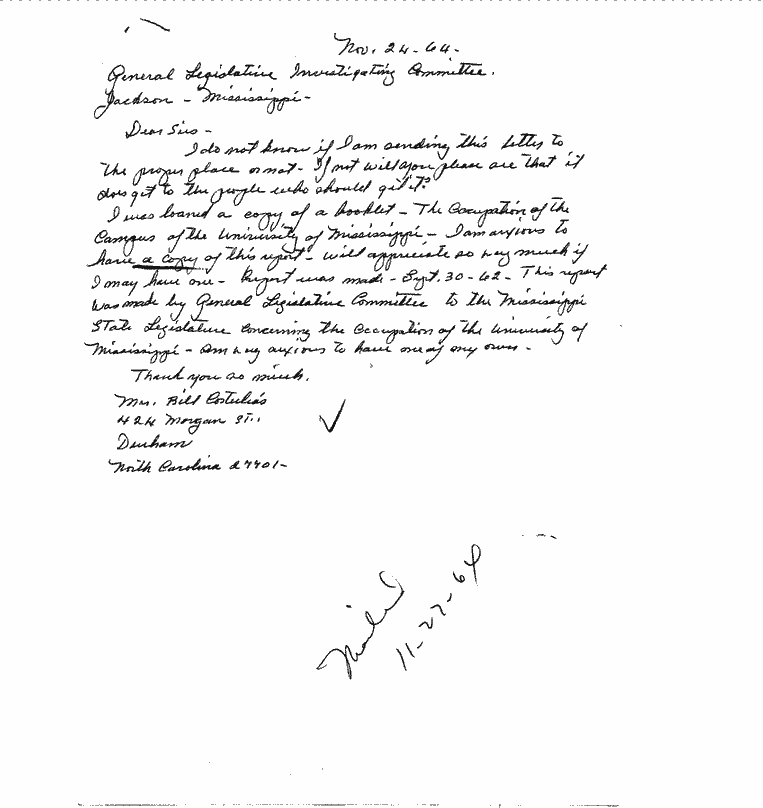 Nov. 24-64-
General Legislative Investigating Committee.
Jackson - Mississippi-
Dear Sirs -
I do not know if I am sending this letter to
the proper place or not - If not will you please see that it
does get to the people who should get it?
I was loaned a copy of a booklet - The Occupation of the
Campus of the University of Mississippi - I am anxious to
have a copy of this report - will appreciate so very much if
I may have one - Report was made - Sept. 30-62 - This report
was made by General Legislative Committee to the Mississippi
State Legislature concerning the Occupation of the University of
Mississippi - am very anxious to have one of my own -
Thank you so much.
Mrs. Bill
424 Morgan St.,
Durham
North Carolina 27701-
Mailed
11-27-64